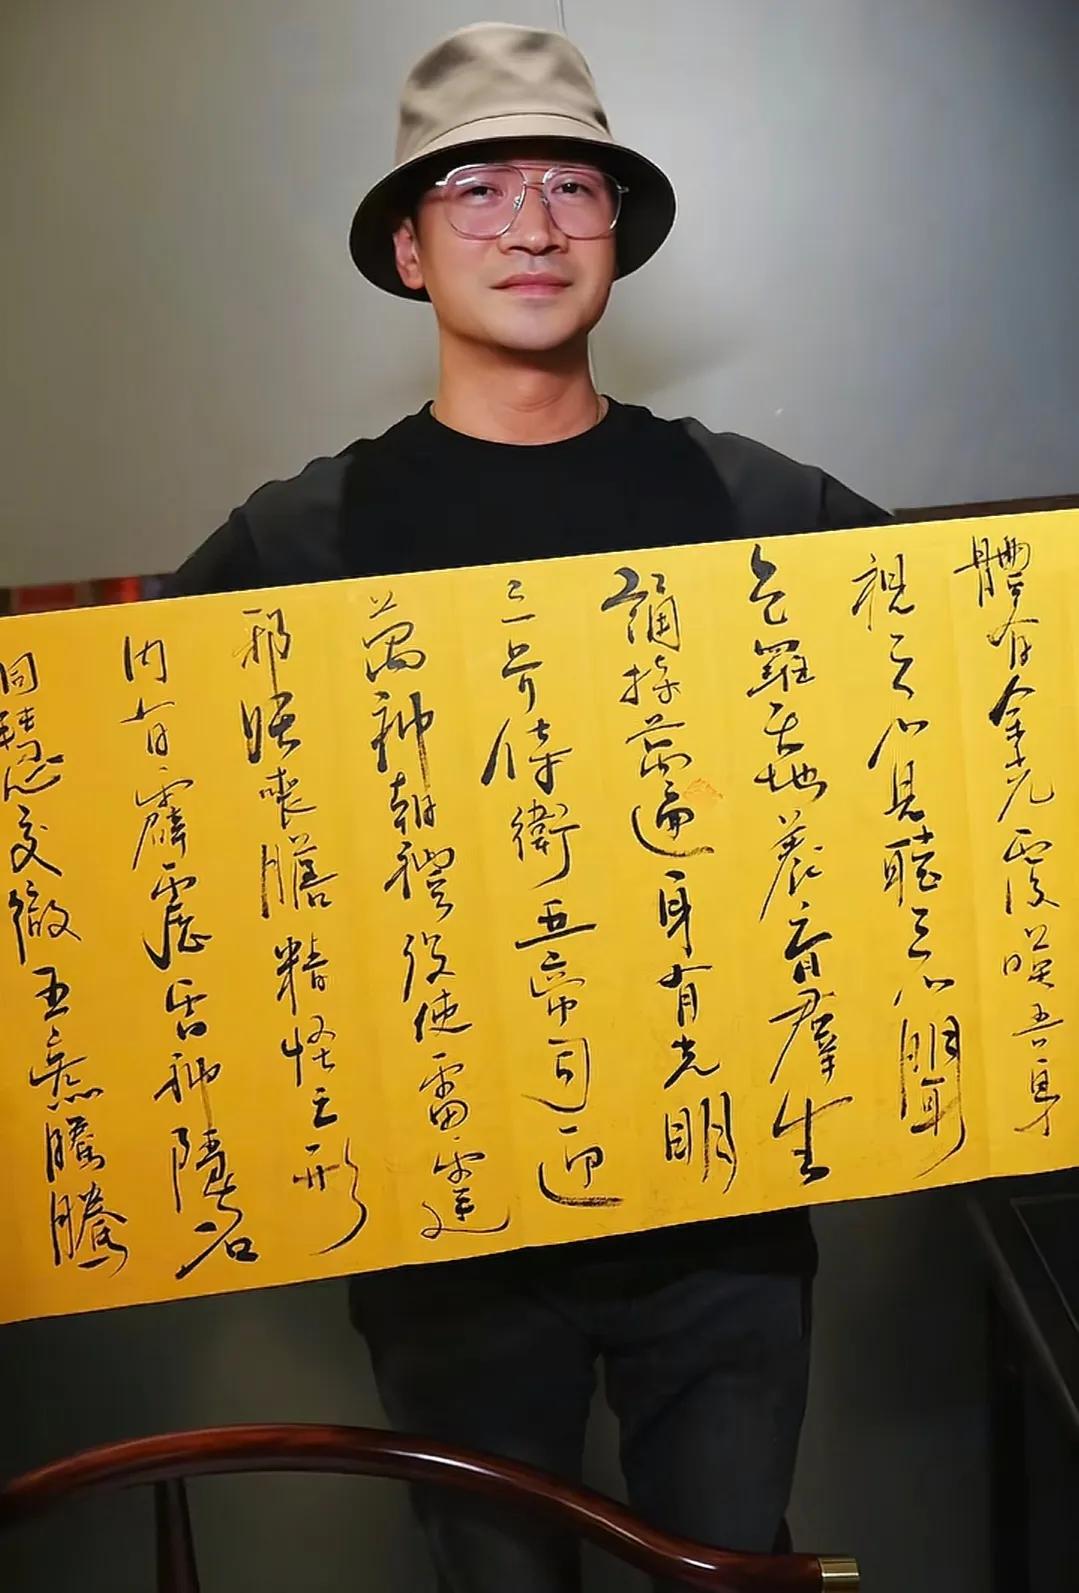 體有金光覆映吾身
視之不見聽之不聞
包羅天地養育羣生
誦持萬遍身有光明
三界侍衛五帝司迎
萬神朝禮役使雷霆
邪喪膽精怪亡形
內有霹靂雷神隱名
洞慧交徹五炁騰騰